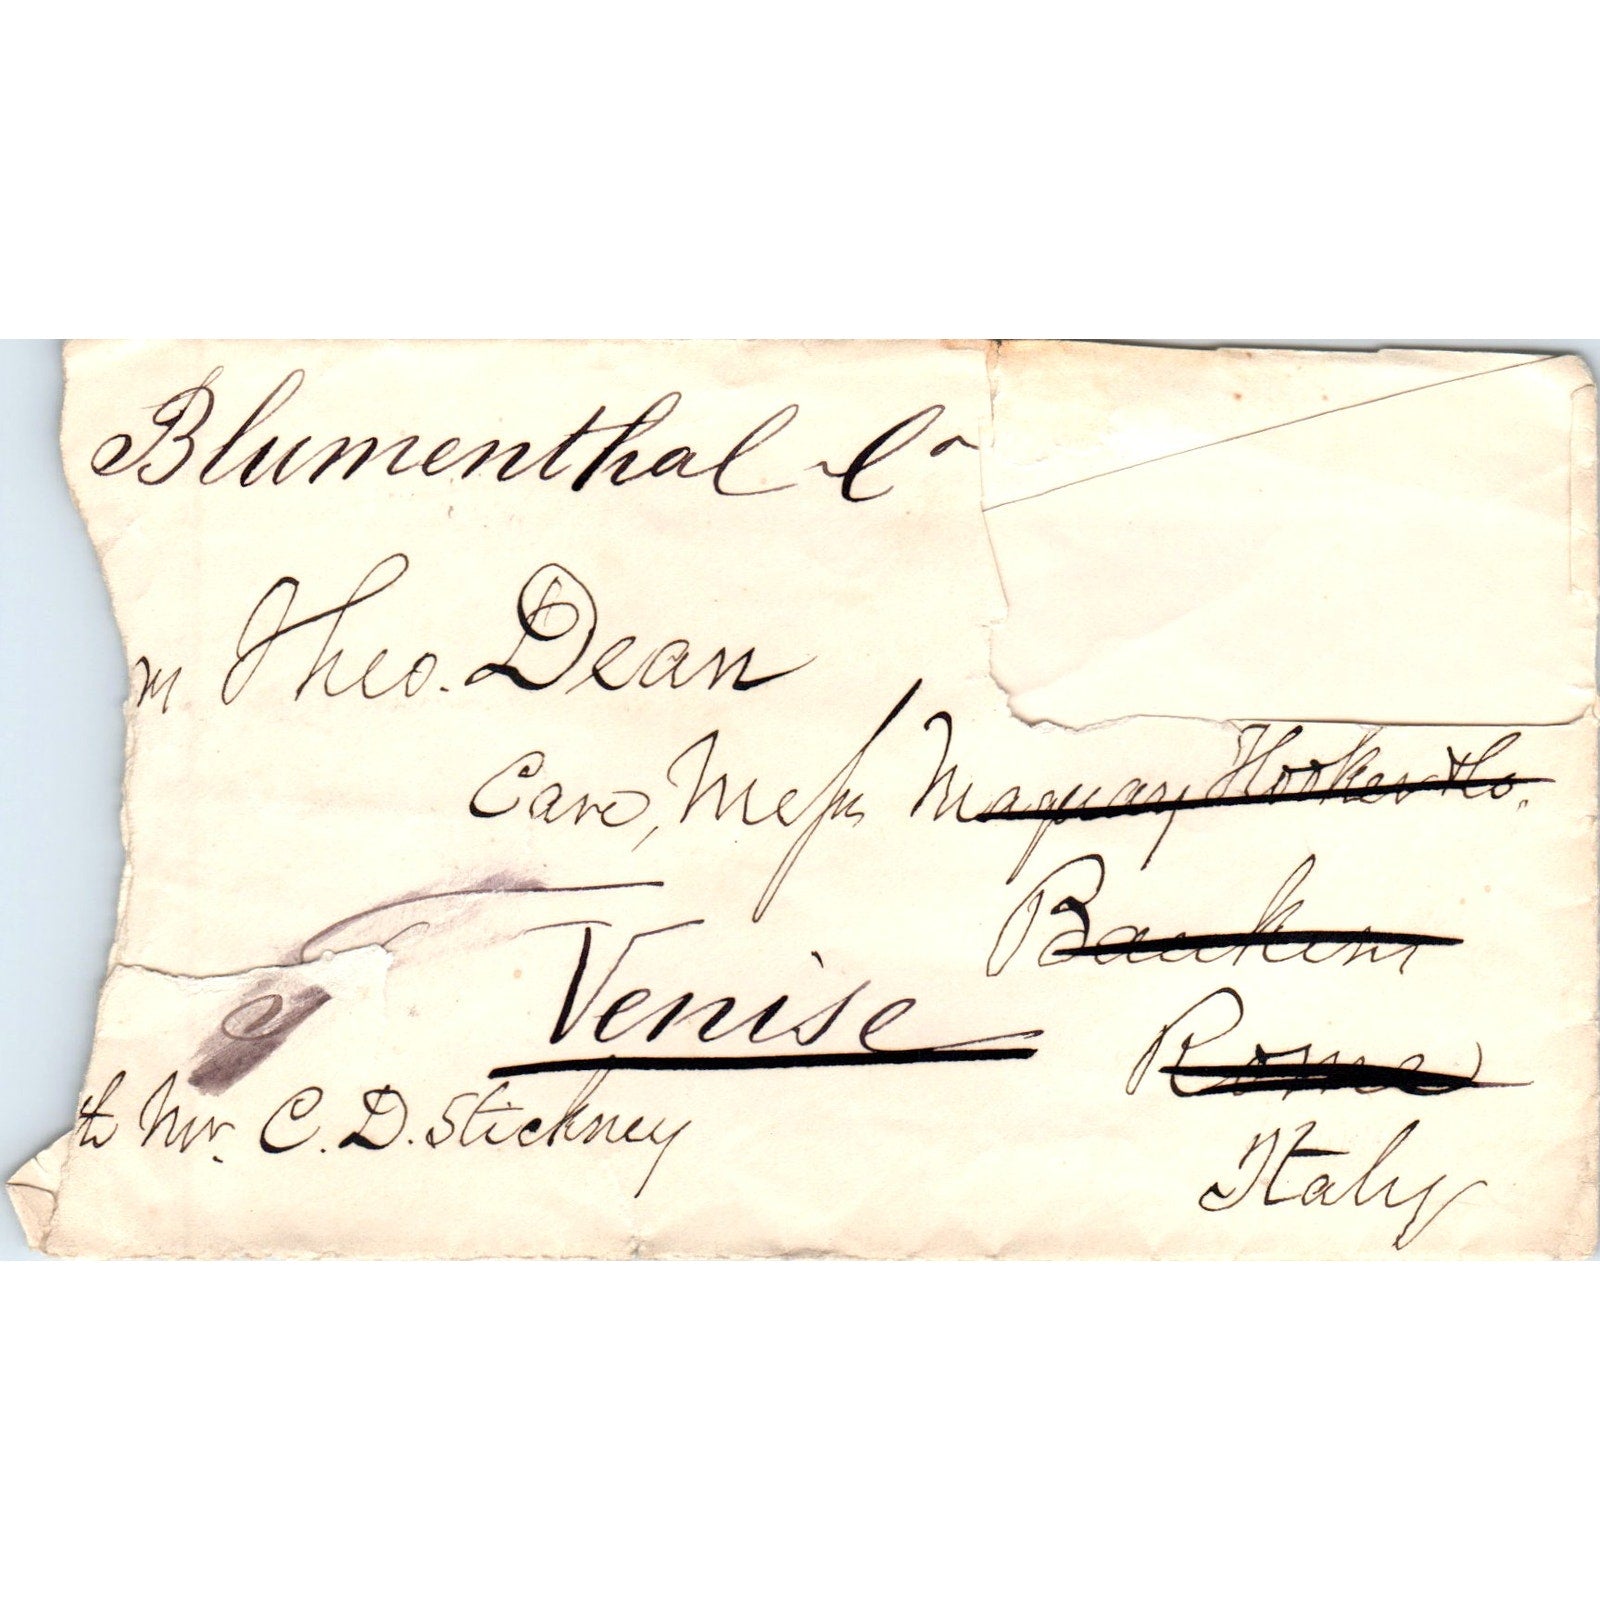 Blumenthal & Co
m Theo. Dean
Care, Messrs Maquay Hooker & Co.
Bankers
Venise
Rome
th Mr. C. D. Stickney
Italy